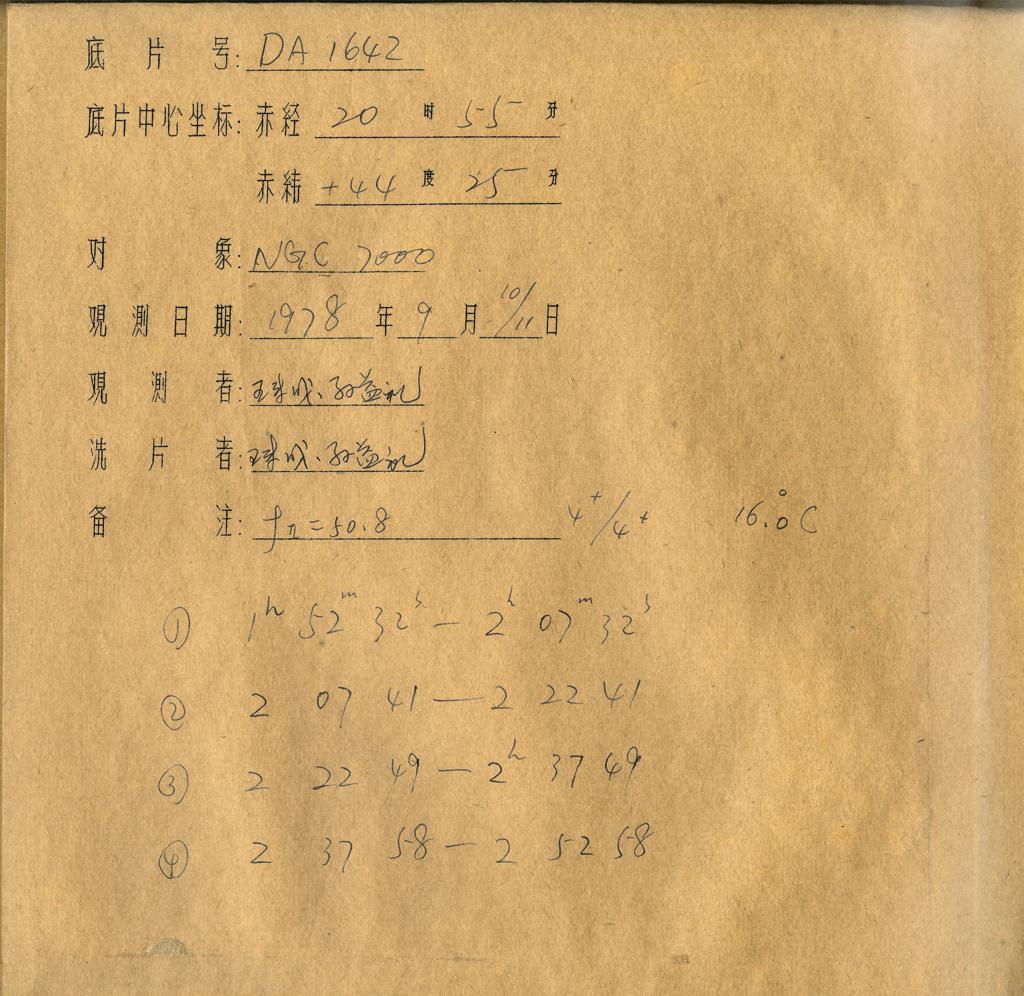 底片号: DA 1642
底片中心坐标: 赤经 20 时 55 分
赤纬 +44 度 25 分
对象: NGC 7000
观测日期: 1978 年 9 月 10/11 日
观测者: 孙益礼
洗片者: 孙益礼
备注: f = 50.8 4⁺/4⁺ 16.°0 C
① 1ʰ 52ᵐ 32ˢ — 2ʰ 07ᵐ 32ˢ
② 2 07 41 — 2 22 41
③ 2 22 49 — 2ʰ 37 49
④ 2 37 58 — 2 52 58